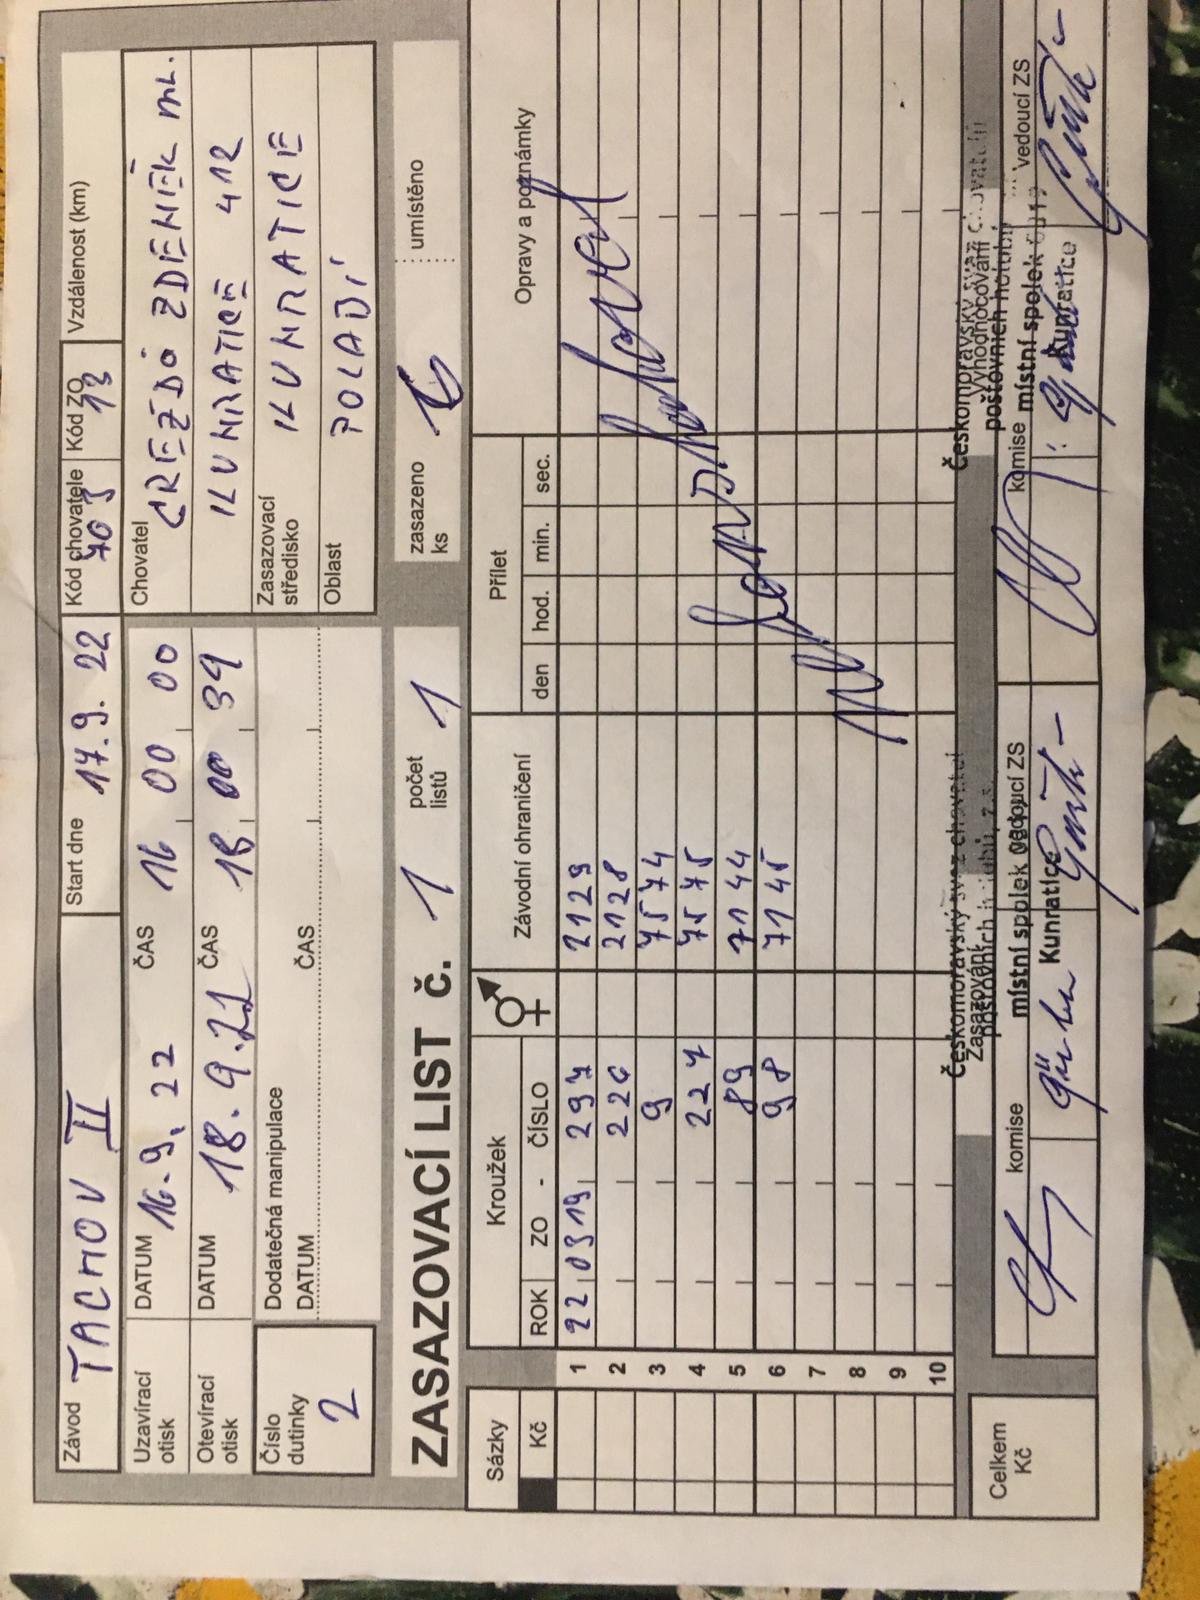 Závod TACHOV II Start dne 17.9. 22 Kód chovatele 703 Kód ZO 13 Vzdálenost (km)
Uzavírací otisk DATUM 16.9. 22 ČAS 16 00 00
Otevírací otisk DATUM 18.9.22 ČAS 18 00 34
Chovatel ZDENĚK ML.
KUNRATICE 412
Číslo dutinky 2
Dodatečná manipulace
DATUM ČAS
Zasazovací středisko KUNRATICE
Oblast POLABÍ
ZASAZOVACÍ LIST č. 1 počet listů 1 zasazeno ks 6 umístěno
Sázky Kroužek Závodní ohraničení Přílet Opravy a poznámky
Kč ROK ZO - ČÍSLO den hod. min. sec.
1 22 0319 297 2129
2 226 2128
3 9 7574
4 227 7575
5 89 7144
6 98 7145
7
8
9
10
Českomoravský svaz chovatelů
Zasazování
poštovních holubů, z.s.
Českomoravský svaz chovatelů
Vyhodnocování
poštovních holubů
Celkem Kč
komise místní spolek vedoucí ZS
Kunratice
komise místní spolek vedoucí ZS
Kunratice